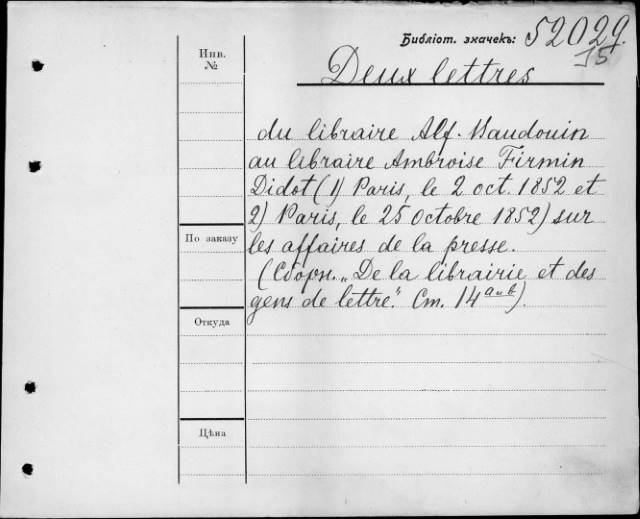 Библіот. значекъ: 52029.
J5
Инв.
№
Deux lettres
du libraire Alf. Baudouin
au libraire Ambroise Firmin
Didot (1) Paris, le 2 oct. 1852 et
2) Paris, le 25 Octobre 1852) sur
les affaires de la presse.
(Сборн. „De la librairie et des
gens de lettre“. Ст. 14 a и b).
По заказу
Откуда
Цѣна